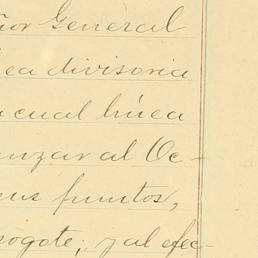 ñor General
ea divisoria
a cual línea
anzar al Oc-
sus puntos,
sogote; y al efec-